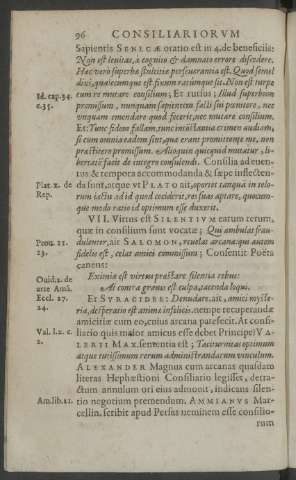 96 CONSILIARIORVM
Sapientis SENECÆ oratio est in 4. de beneficiis:
Non est levitas, à cognito & damnato errore discedere.
Hæc verò superba stultitiæ perseverantia est. Quod semel
dixi, qualecumque est fixum ratumque sit. Non est turpe
Id. cap. 34.
cum re mutare consilium; Et rursus; Illud superbum
c. 35.
promissum, nunquam sapientem facti sui pœnitere, nec
unquam emendare quod fecerit, nec mutare consilium.
Et: Tunc fidem fallam, tunc inconstantiæ crimen audiam,
si cum omnia eadem sint, quæ erant promittente me, non
præstitero promissum. Alioquin quicquid mutatur, li-
bertatē facit de integro consulendi. Consilia ad even-
tus & tempora accommoda & sæpe inflecten-
Plat. x. de
da sunt, atque ut PLATO ait, oportet tanquā in tesse-
Rep.
rum iactu ad id quod ceciderit, res suas aptare, quocum-
que modo ratio id optimum esse duxerit.
VII. Virtus est SILENTIVM earum rerum,
quæ in consilium sunt vocatæ; Qui ambulat frau-
Prou. 11.
dulenter, ait SALOMON, reuelat arcana: qui autem
13.
fidelis est, celat amici commissum; Consentit Poëta
canens:
Ouid. 2. de
Eximia est virtus præstare silentia rebus:
arte Amā.
At contra gravis est culpa, tacenda loqui.
Eccl. 27.
Et SYRACIDES: Denudare, ait, amici myste-
24.
ria, desperatio est animæ infelicis. nempe recuperandæ
amicitiæ cum eo, cuius arcana patefecit. At consi-
Val. l. 2. c.
liario quis maior amicus esse debet Principe? VA-
2.
LERII MAX. sententia est; Taciturnitas optimum
atque tutissimum rerum administrandarum vinculum.
ALEXANDER Magnus cum arcanas quasdam
literas Hephæstioni Consiliario legisset, detra-
ctum annulum ori eius admouit, indicans silen-
Am. lib. 21.
tio negotium premendum. AMMIANVS Mar-
cellin. scribit apud Persas neminem esse consilio-
rum